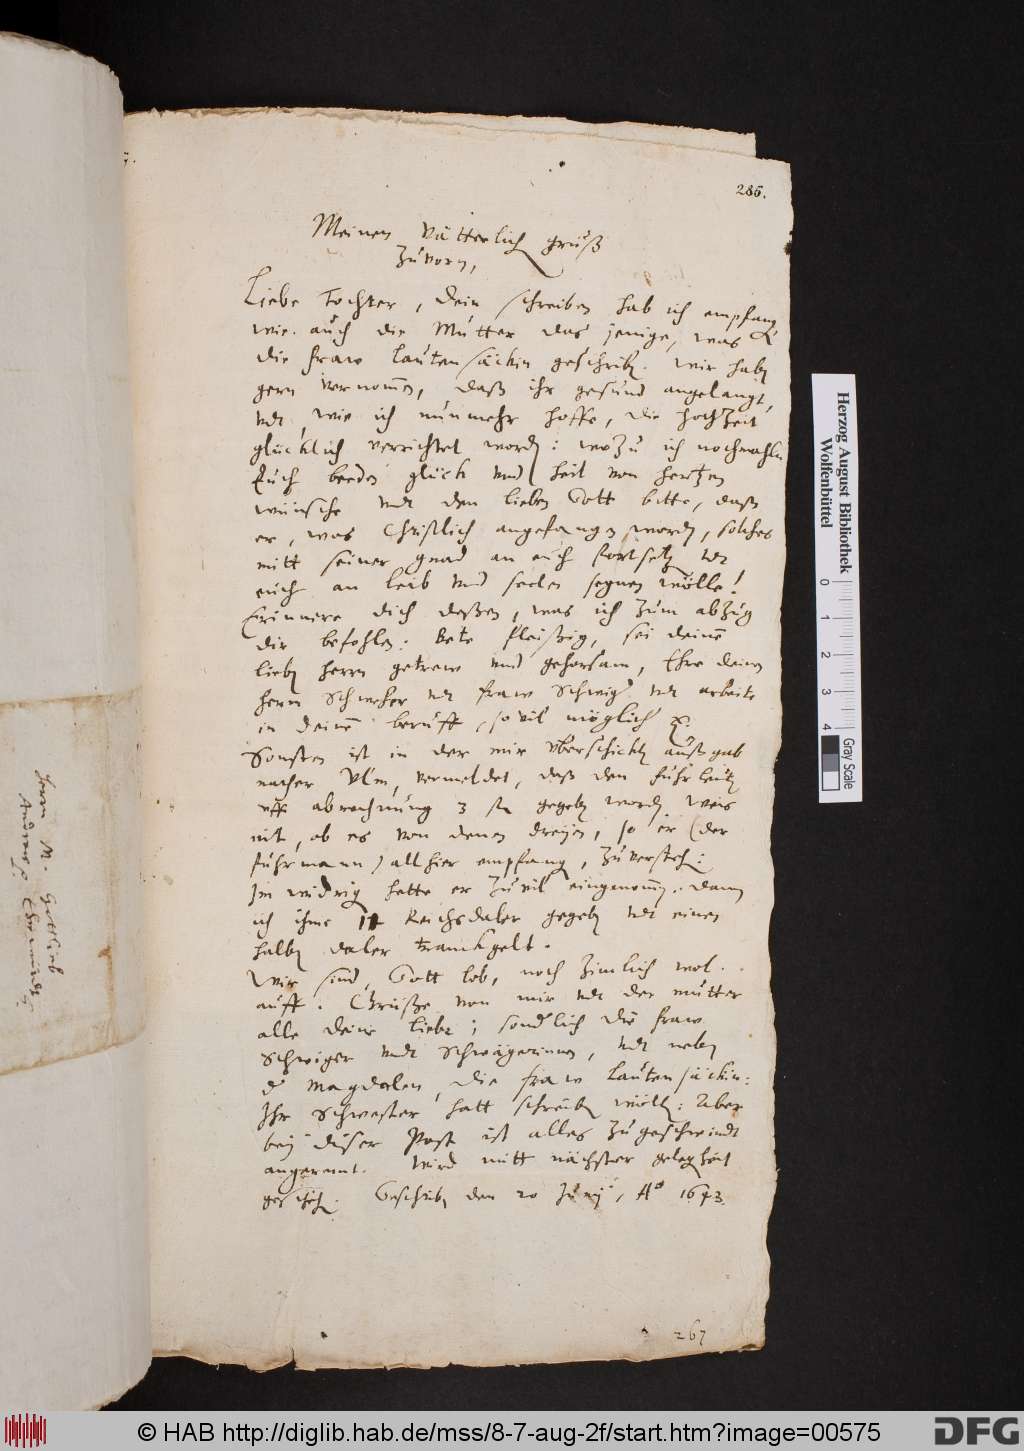 285.
Meinen Vätterlich gruß
Zuvorn,
Liebe Tochter, dein schreiben hab ich empfang
wie auch die Mutter das jenige, was
die fraw lautensäckin geschrib. wir hab
gern vernomen, daß ihr gesund angelangt,
vnd, wie ich nunmehr hoffe, die hochzeit
glücklich verrichtet word: wozu ich nochmahln
Euch beeden glück vnd heil von hertzen
wünsche vnd den lieben Gott bitte, daß
er, was Christlich angefangen worden, solches
mitt seiner gnad an euch fortsetz vnd
euch an leib vnd seelen segnen wölle!
Erinnere dich deßen, was ich zum abzug
dir befohlen: Bete fleißig, sei deinem
lieb herrn getrew vnd gehorsam, Ehre deinen
herrn Schweher vnd fraw Schwiger vnd arbeite
in deinem beruff, so vil möglich
Sonsten ist in der mir vberschickt außgab
nacher Vlm, vermeldet, daß den fuhrleut
vff abrechnung 3 gegeb word. Weis
nit, ob es von denen dreyen, so er (der
fuhrmann) allhier empfang, zuversteh:
Im widrig hette er zuvil eingenomen. dann
ich ihme 14 Reichsdaler gegeb vnd einen
halb daler tranckgelt.
Wir sind, Gott lob, noch zimlich wol
auff. Grüße von mir vnd der mutter
alle deine liebe; sonderlich die fraw
Schwiger vnd Schwägerinnen, vnd neben
d Magdalen, die fraw lautensäckin:
Ihr Schwester hatt schreiben wöllen: Aber
bey diser Post ist alles zugeschwindt
angerennt. Wird mitt nächster gelegheit
gescheh. Geschrib den 20 Junij, Ao 1643.
267
Herrn M. Gottlieb
Andreae
Herzog August Bibliothek
Wolfenbüttel
0 1 2 3 4
Gray Scale
© HAB http://diglib.hab.de/mss/8-7-aug-2f/start.htm?image=00575
DFG